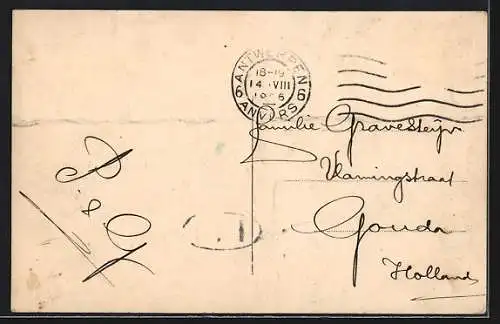 6 ANTWERPEN 6
18-19
14 VIII
ANVERS
Familie Gravesteijn
Vlamingstraat
Gouda
Holland